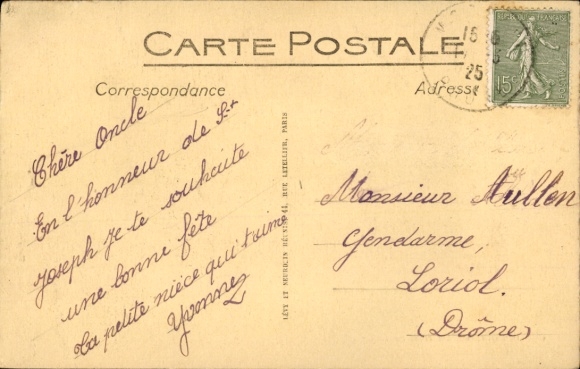 CARTE POSTALE
Correspondance
Adresse
RÉPUBLIQUE FRANÇAISE
15c
POSTES
15
25
Chère Oncle
En l'honneur de St
Joseph je te souhaite
une bonne fête
Ta petite nièce qui t'aime
Yvonne
LÉVY ET NEURDEIN RÉUNIS, 44, RUE LETELLIER, PARIS
Monsieur
Gendarme,
Loriol.
(Drôme)